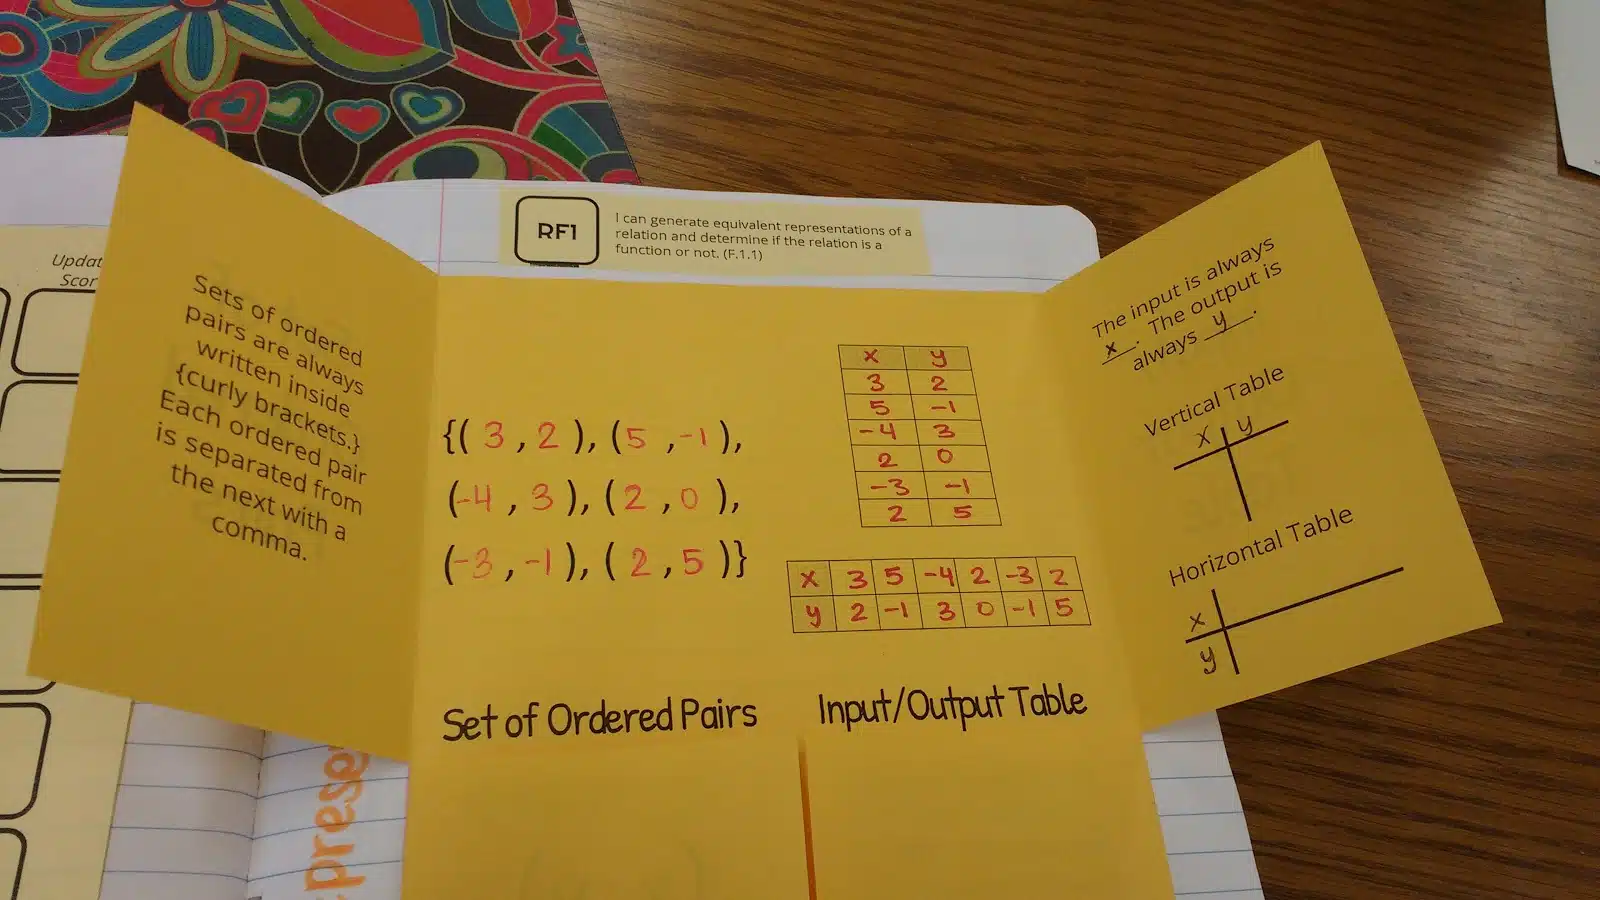 Updat
Scor
RF1
I can generate equivalent representations of a
relation and determine if the relation is a
function or not. (F.1.1)
Sets of ordered
pairs are always
written inside
{curly brackets.}
Each ordered pair
is separated from
the next with a
comma.
{( 3 , 2 ), (5 , -1),
(-4 , 3 ), (2 , 0 ),
(-3 , -1), ( 2 , 5 )}
Set of Ordered Pairs
x y
3 2
5 -1
-4 3
2 0
-3 -1
2 5
x 3 5 -4 2 -3 2
y 2 -1 3 0 -1 5
Input/Output Table
The input is always
x. The output is
always y.
Vertical Table
x y
Horizontal Table
x
y
pres